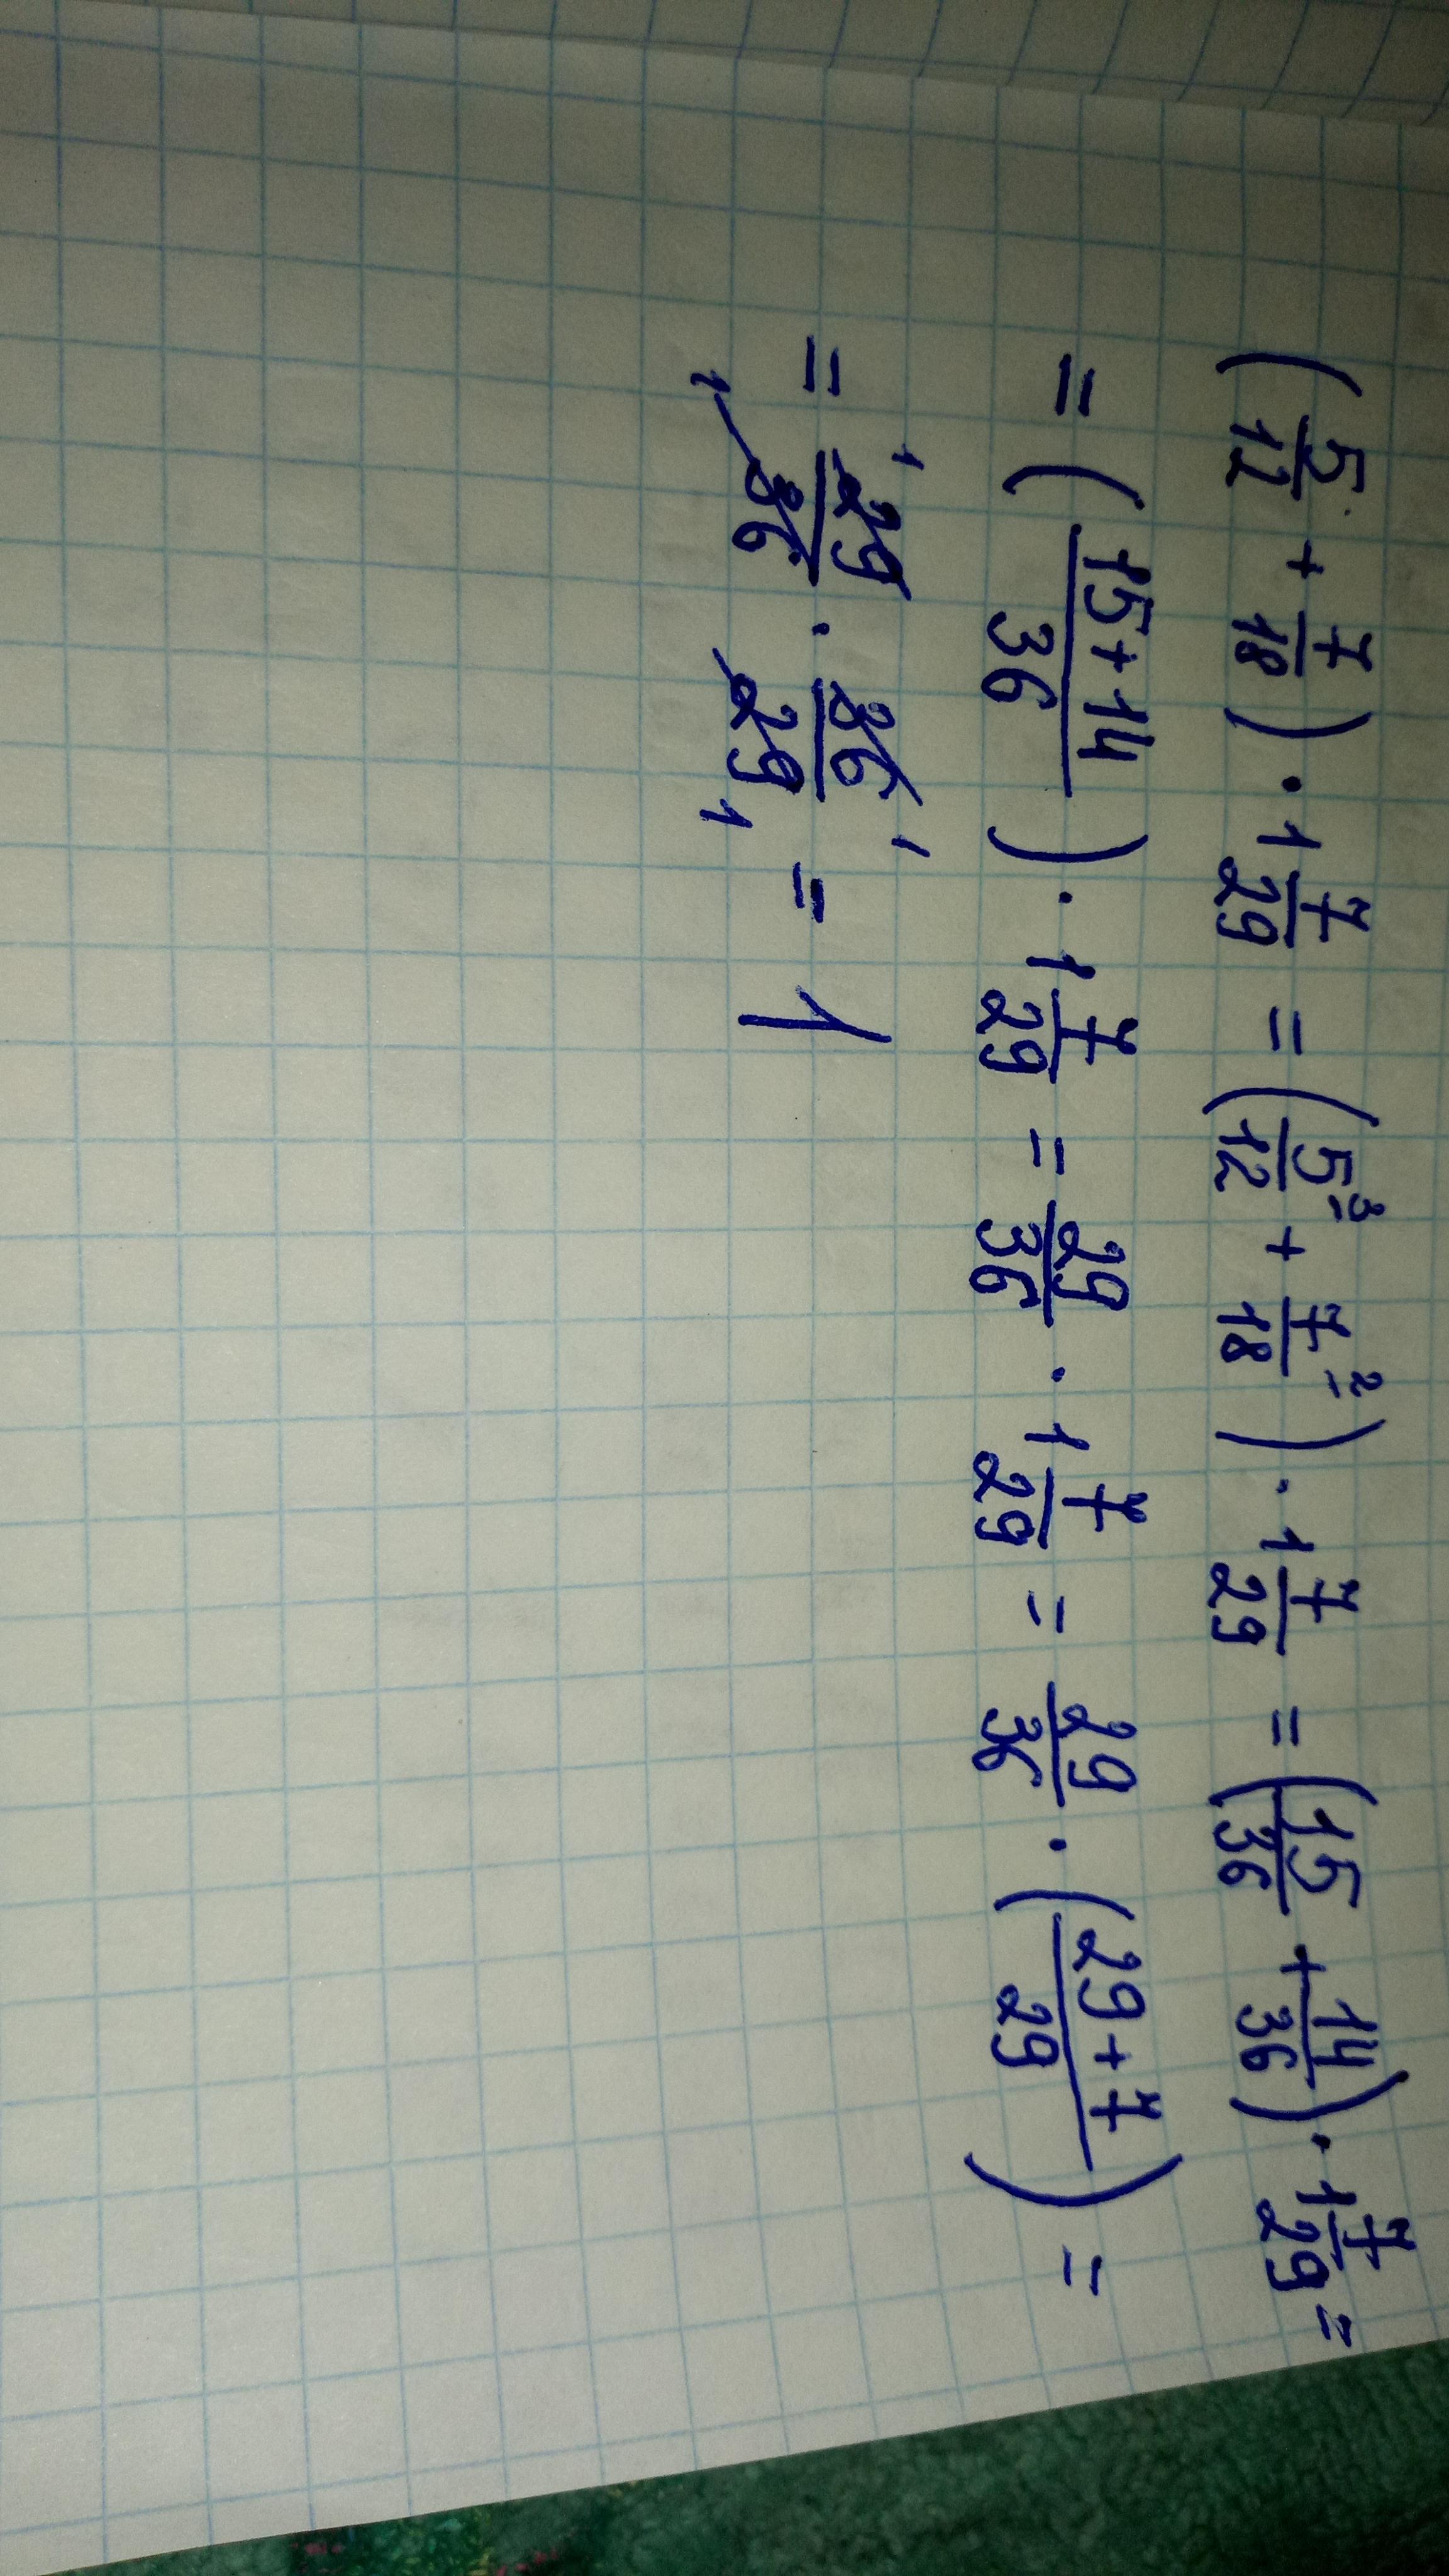 (5/12 + 7/18) · 1 7/29 = (5/12 ³ + 7/18 ²) · 1 7/29 = (15/36 + 14/36) · 1 7/29 =
= ((15+14)/36) · 1 7/29 = 29/36 · 1 7/29 = 29/36 · ((29+7)/29) =
= ¹ 29/36 ₁ · 36/29 ¹ ₁ = 1